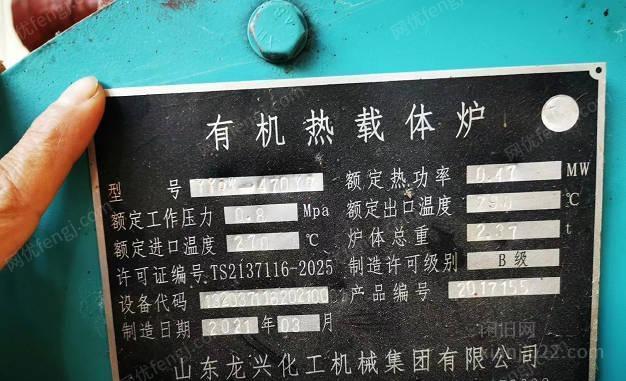 有机热载体炉
型 号 额定热功率 0.47 MW
额定工作压力 0.8 Mpa 额定出口温度 ℃
额定进口温度 270 ℃ 炉体总重 2.37 t
许可证编号 TS2137116-2025 制造许可级别 B 级
设备代码 产品编号 2017155
制造日期 2021 年 03 月
山东龙兴化工机械集团有限公司